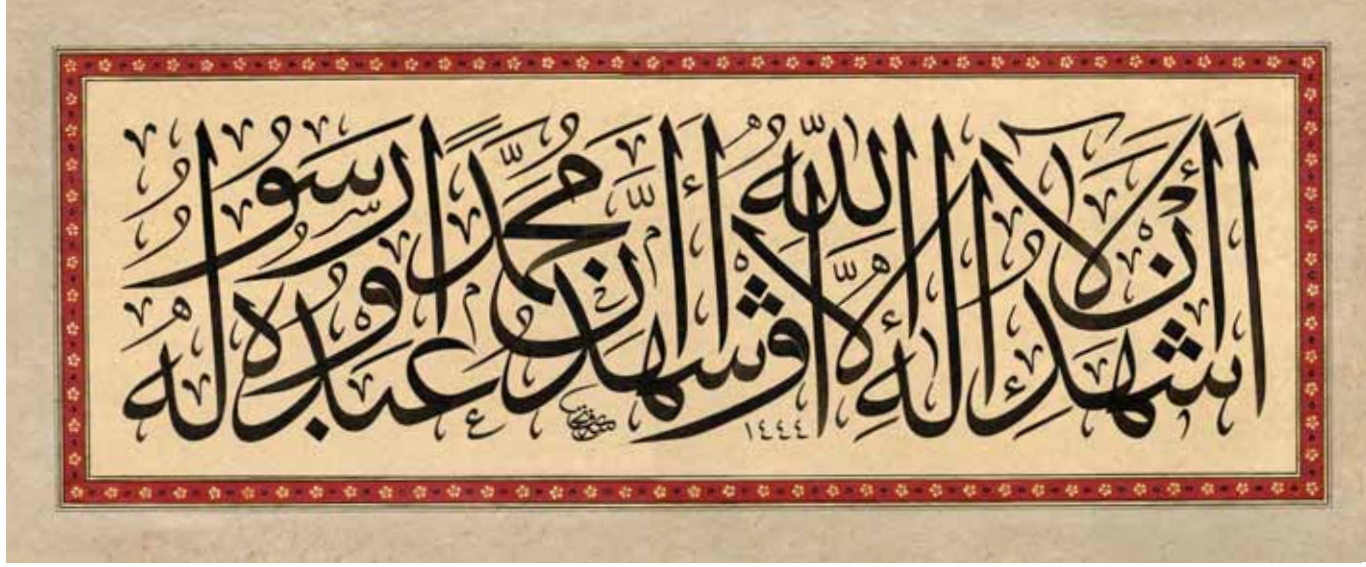 اشهد أن لا إله إلا الله وأشهد أن محمدا عبده ورسوله
١٤٤٤